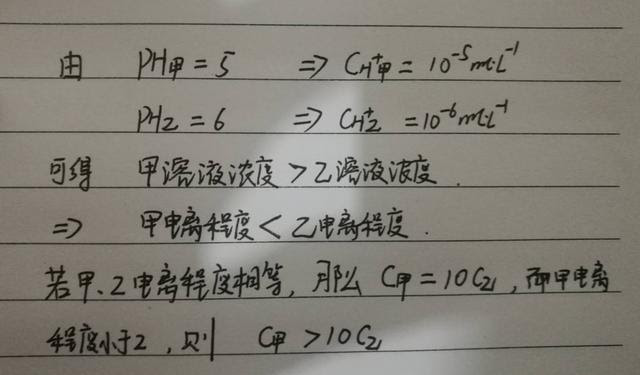 由 PH甲 = 5 => CH⁺甲 = 10⁻⁵ mol·L⁻¹
PH乙 = 6 => CH⁺乙 = 10⁻⁶ mol·L⁻¹
可得 甲溶液浓度 > 乙溶液浓度.
=> 甲电离程度 < 乙电离程度.
若甲、乙电离程度相等, 那么 C甲 = 10C乙, 而甲电离
程度小于乙, 则 C甲 > 10C乙